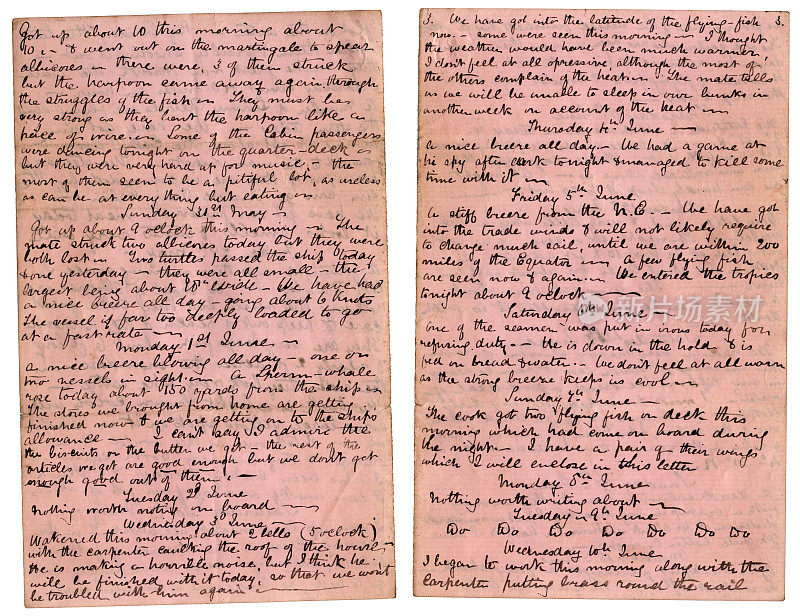 Got up about 10 this morning about
10 & I went out on the martingale to spear
albicores there were 3 of them struck
but the harpoon came away again through
the struggles of the fish They must be
very strong as they bent the harpoon like a
piece of wire. Some of the Cabin passengers
were dancing tonight on the quarter-deck
but they were very hard up for music – the
most of them seem to be a pitiful lot, as useless
as can be at everything but eating
Sunday 31st May
Got up about 9 oclock this morning The
mate struck two albicores today but they were
both lost Two turtles passed the ship today
& one yesterday – they were all small – the
largest being about wide – We have had
a nice breeze all day – going about 6 knots
The vessel if far too deeply loaded to go
at a fast rate
Monday 1st June
a nice breeze blowing all day – one or
two vessels in sight. A Sperm-whale
rose today about 150 yards from the ship
The stores we brought from home are getting
finished now & we are getting on to the ships
allowance – I can't say I admire the
the biscuits or the butter we get – the rest of the
articles we get are good enough but we dont get
enough good out of them.
Tuesday 2d June
nothing worth noting on board
Wednesday 3d June
Wakened this morning about 2 bells (5 oclock)
with the carpenter caulking the roof of the house
He is making a horrible noise, but I think he
will be finished with it today, so that we wont
be troubled with him again
3. We have got into the latitude of the flying-fish 3.
now – some were seen this morning – I thought
the weather would have been much warmer
I dont feel at all opressive, although the most of
the others complain of the heat The mate tells
us we will be unable to sleep in our bunks in
another week on account of the heat
Thursday 4th June
a nice breeze all day – We had a game at
hi spy after dark tonight & managed to kill some
time with it
Friday 5th June
a stiff breeze from the N.E. – We have got
into the trade winds & will not likely require
to change much sail, until we are within 200
miles of the Equator A few flying fish
are seen now & again We entered the tropics
tonight about 9 oclock
Saturday 6th June
one of the seamen was put in irons today for
refusing duty. – He is down in the hold & is
fed on bread & water. – We dont feel at all warm
as the strong breeze keeps us cool
Sunday 7th June
The cook got two flying fish on deck this
morning which had come on board during
the night – I have a pair of their wings
which I will enclose in this letter
Monday 8th June
nothing worth writing about
Tuesday 9th June
Do Do Do Do Do Do Do
Wednesday 10th June
I began to work this morning along with the
carpenter putting brass round the rail
iStock